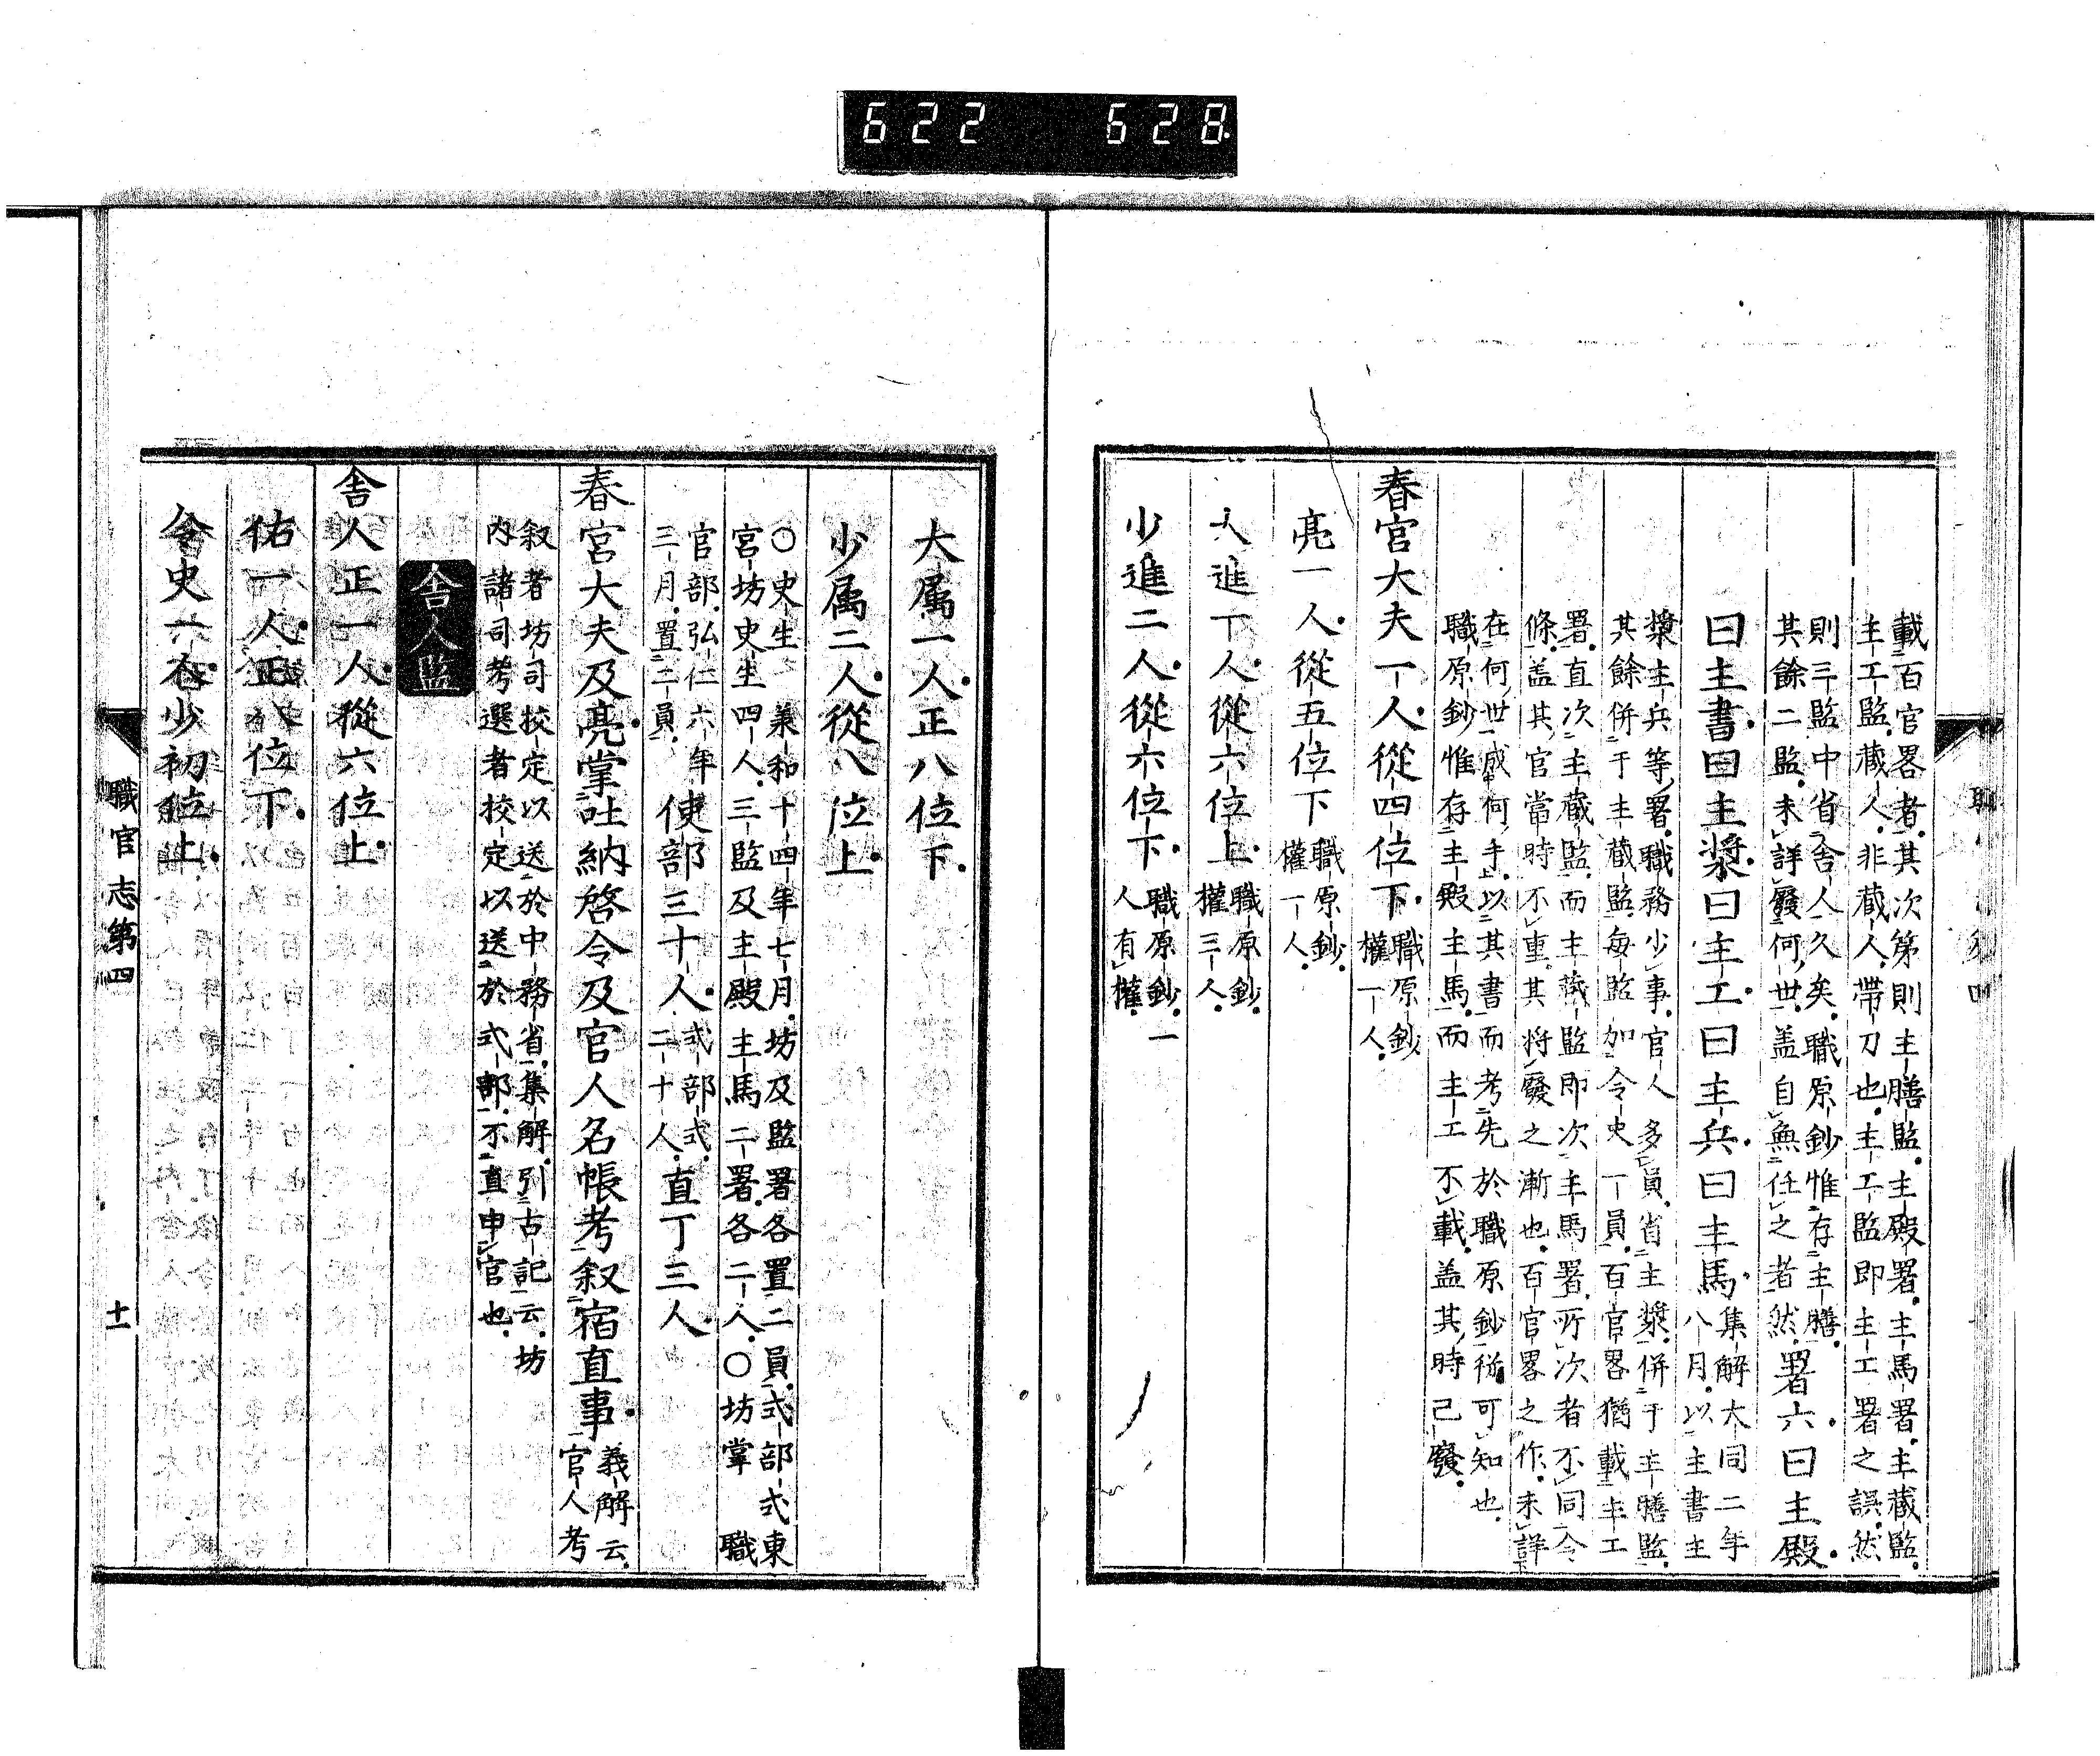 622 628
載百官畧者其次第則主膳監主殿署主馬署主藏監
主工監藏人非藏人帶刀也主工監即主工署之誤然
則三監中省舍人久矣職原鈔惟存主膳
其餘二監未詳廢何世盖自無任之者然署六曰主殿
曰主書曰主漿曰主工曰主兵曰主馬集解大同二年
八月以主書主
漿主兵等署職務少事官人多員省主漿併于主膳監
其餘併于主藏監每監加令史一員百官畧猶載主工
署直次主藏監而主藏監即次主馬署所次者不同令
條盖其官當時不重其將廢之漸也百官畧之作未詳
在何世成何手以其書而考先於職原鈔可知也
職原鈔惟存主殿主馬而主工不載盖其時已廢
春宮大夫一人從四位下職原鈔
權一人
亮一人從五位下職原鈔
權一人
大進一人從六位上職原鈔
權三人
少進二人從六位下職原鈔一
人有權
職官志第四
大属一人正八位下
少属二人從八位上
○史生 兼和十四年七月坊及監署各置二員式部式東
宮坊史生四人三監及主殿主馬二署各二人○坊掌 職
官部弘仁六年
三月置二員使部三十人式部式
二十人直丁三人
春宮大夫及亮掌吐納啓令及官人名帳考叙宿直事義解云
官人考
叙者坊司校定以送於中務省集解引古記云坊
内諸司考選者校定以送於式部不直申官也
舍人監
舍人正一人從六位上
佑一人正八位下
令史一人少初位上
職官志第四 十一